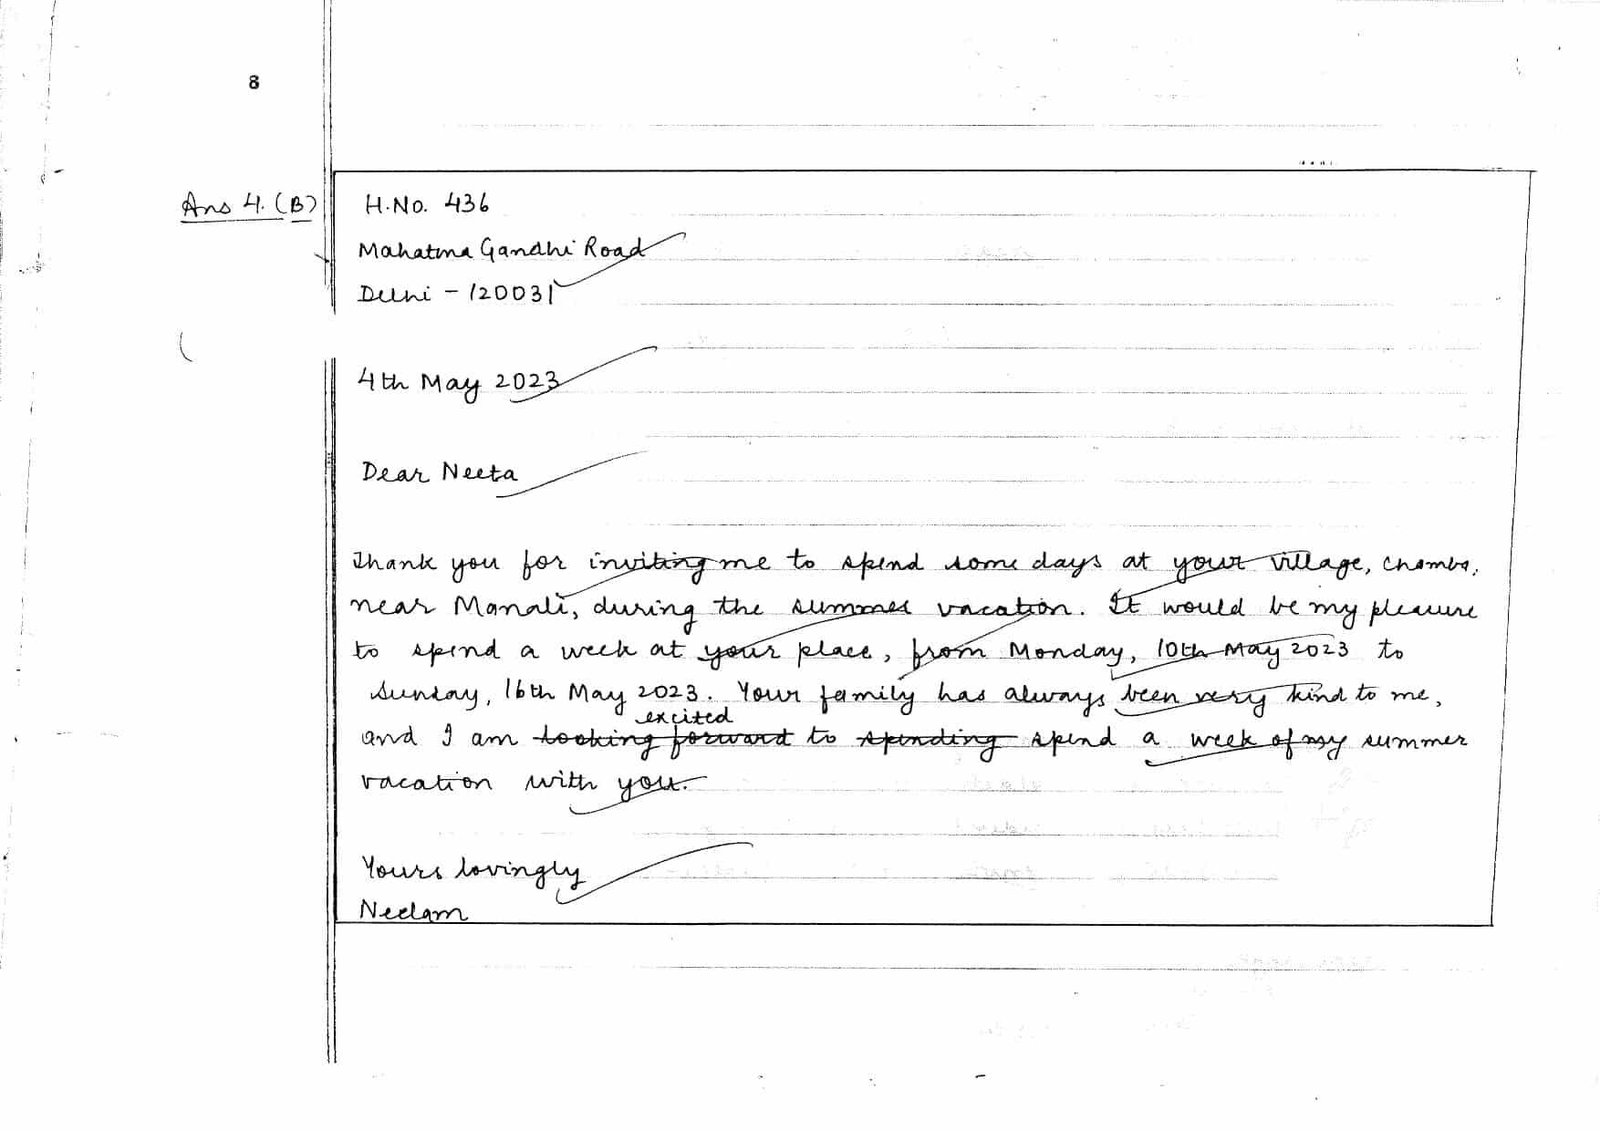 8
Ans 4. (B)
H.No. 436
Mahatma Gandhi Road
Delhi - 120031
4th May 2023
Dear Neeta
Thank you for inviting me to spend some days at your village, Chamba,
near Manali, during the summer vacation. It would be my pleasure
to spend a week at your place, from Monday, 10th May 2023 to
Sunday, 16th May 2023. Your family has always been very kind to me,
excited
and I am looking forward to spending spend a week of my summer
vacation with you.
Yours lovingly
Neelam